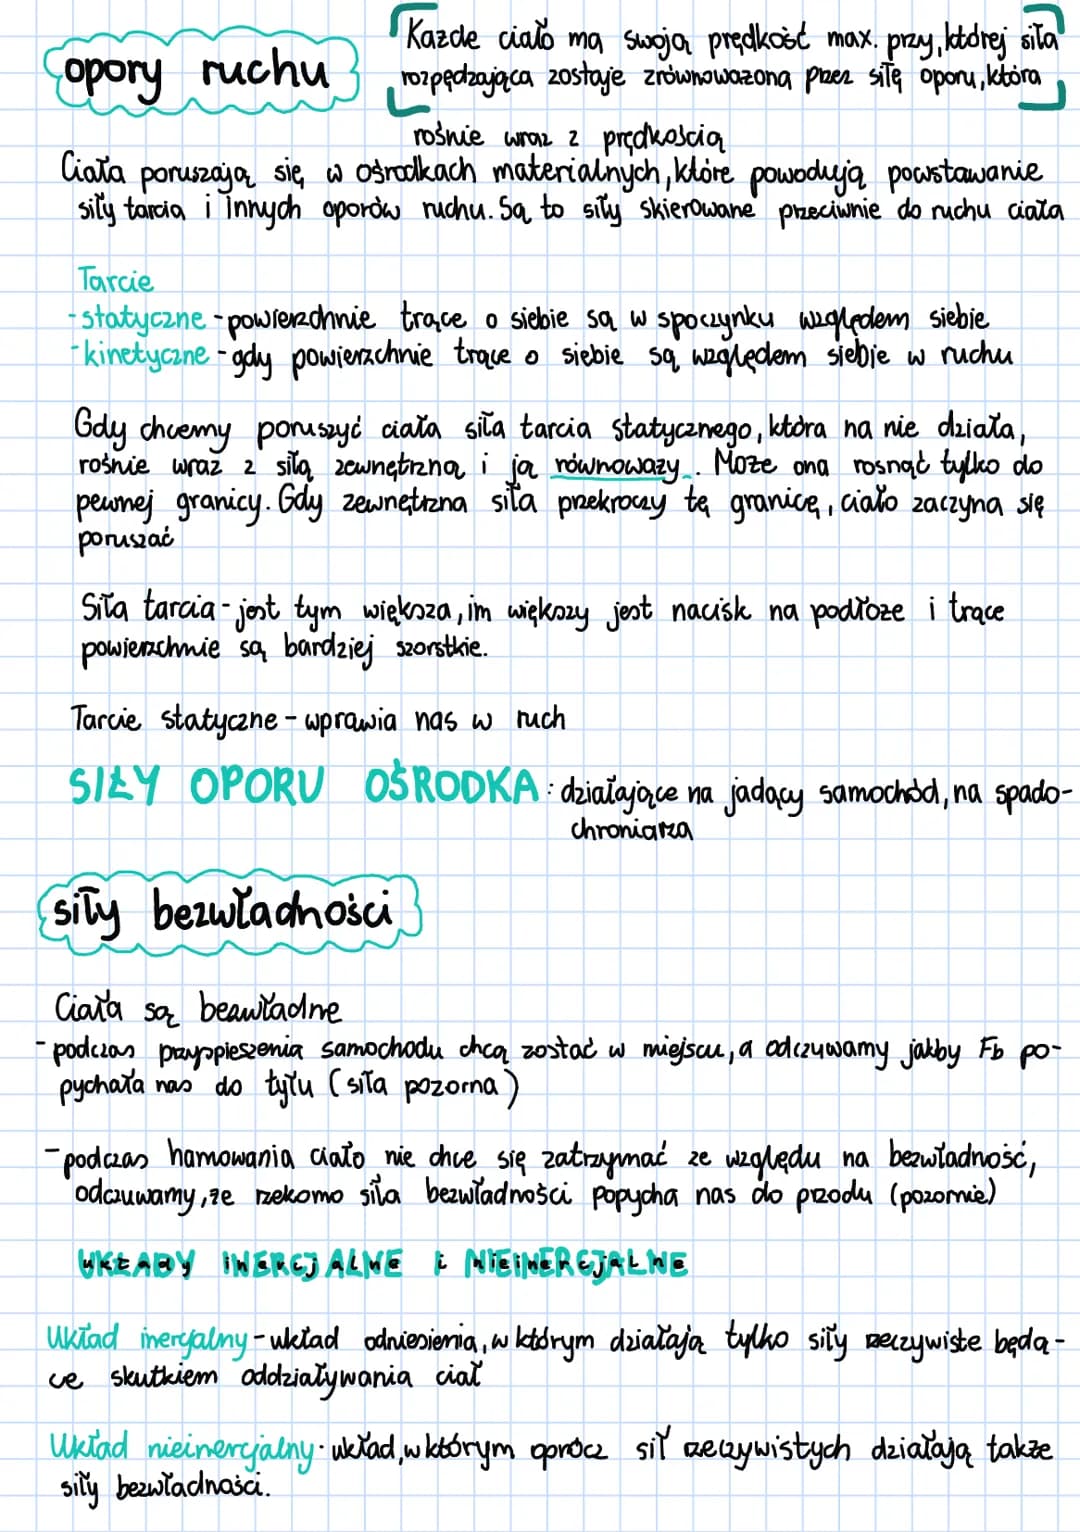 opory ruchu
Każde ciało ma swoją prędkość max. przy, której siła
rozpędzająca zostaje zrównoważona przez siłę oporu, która
rośnie wraz z prędkością
Ciała poruszają się w ośrodkach materialnych, które powodują powstawanie
siły tarcia i innych oporów ruchu. Są to siły skierowane przeciwnie do ruchu ciała
Tarcie
-statyczne - powierzchnie trące o siebie są w spoczynku względem siebie
-kinetyczne - gdy powierzchnie trące o siebie są względem siebie w ruchu
Gdy chcemy poruszyć ciała siła tarcia statycznego, która na nie działa,
rośnie wraz z siłą zewnętrzną i ją równoważy. Może ona rosnąć tylko do
pewnej granicy. Gdy zewnętrzna siła przekroczy tę granicę, ciało zaczyna się
poruszać
Siła tarcia - jest tym większa, im większy jest nacisk na podłoże i trące
powierzchnie są bardziej szorstkie.
Tarcie statyczne - wprawia nas w ruch
SIŁY OPORU OŚRODKA: działające na jadący samochód, na spado-
chroniarza
siły bezwładności
Ciała są bezwładne
- podczas przyspieszenia samochodu chcą zostać w miejscu, a odczuwamy jakby Fb po-
pychała nas do tyłu (siła pozorna)
- podczas hamowania ciało nie chce się zatrzymać ze względu na bezwładność,
odczuwamy, że rzekomo siła bezwładności popycha nas do przodu (pozornie)
UKŁADY iNERCJALNE i NIEINERCJALNE
Układ inercjalny - układ odniesienia, w którym działają tylko siły rzeczywiste będą-
ce skutkiem oddziaływania ciał
Układ nieinercjalny - układ, w którym oprócz sił rzeczywistych działają także
siły bezwładności.